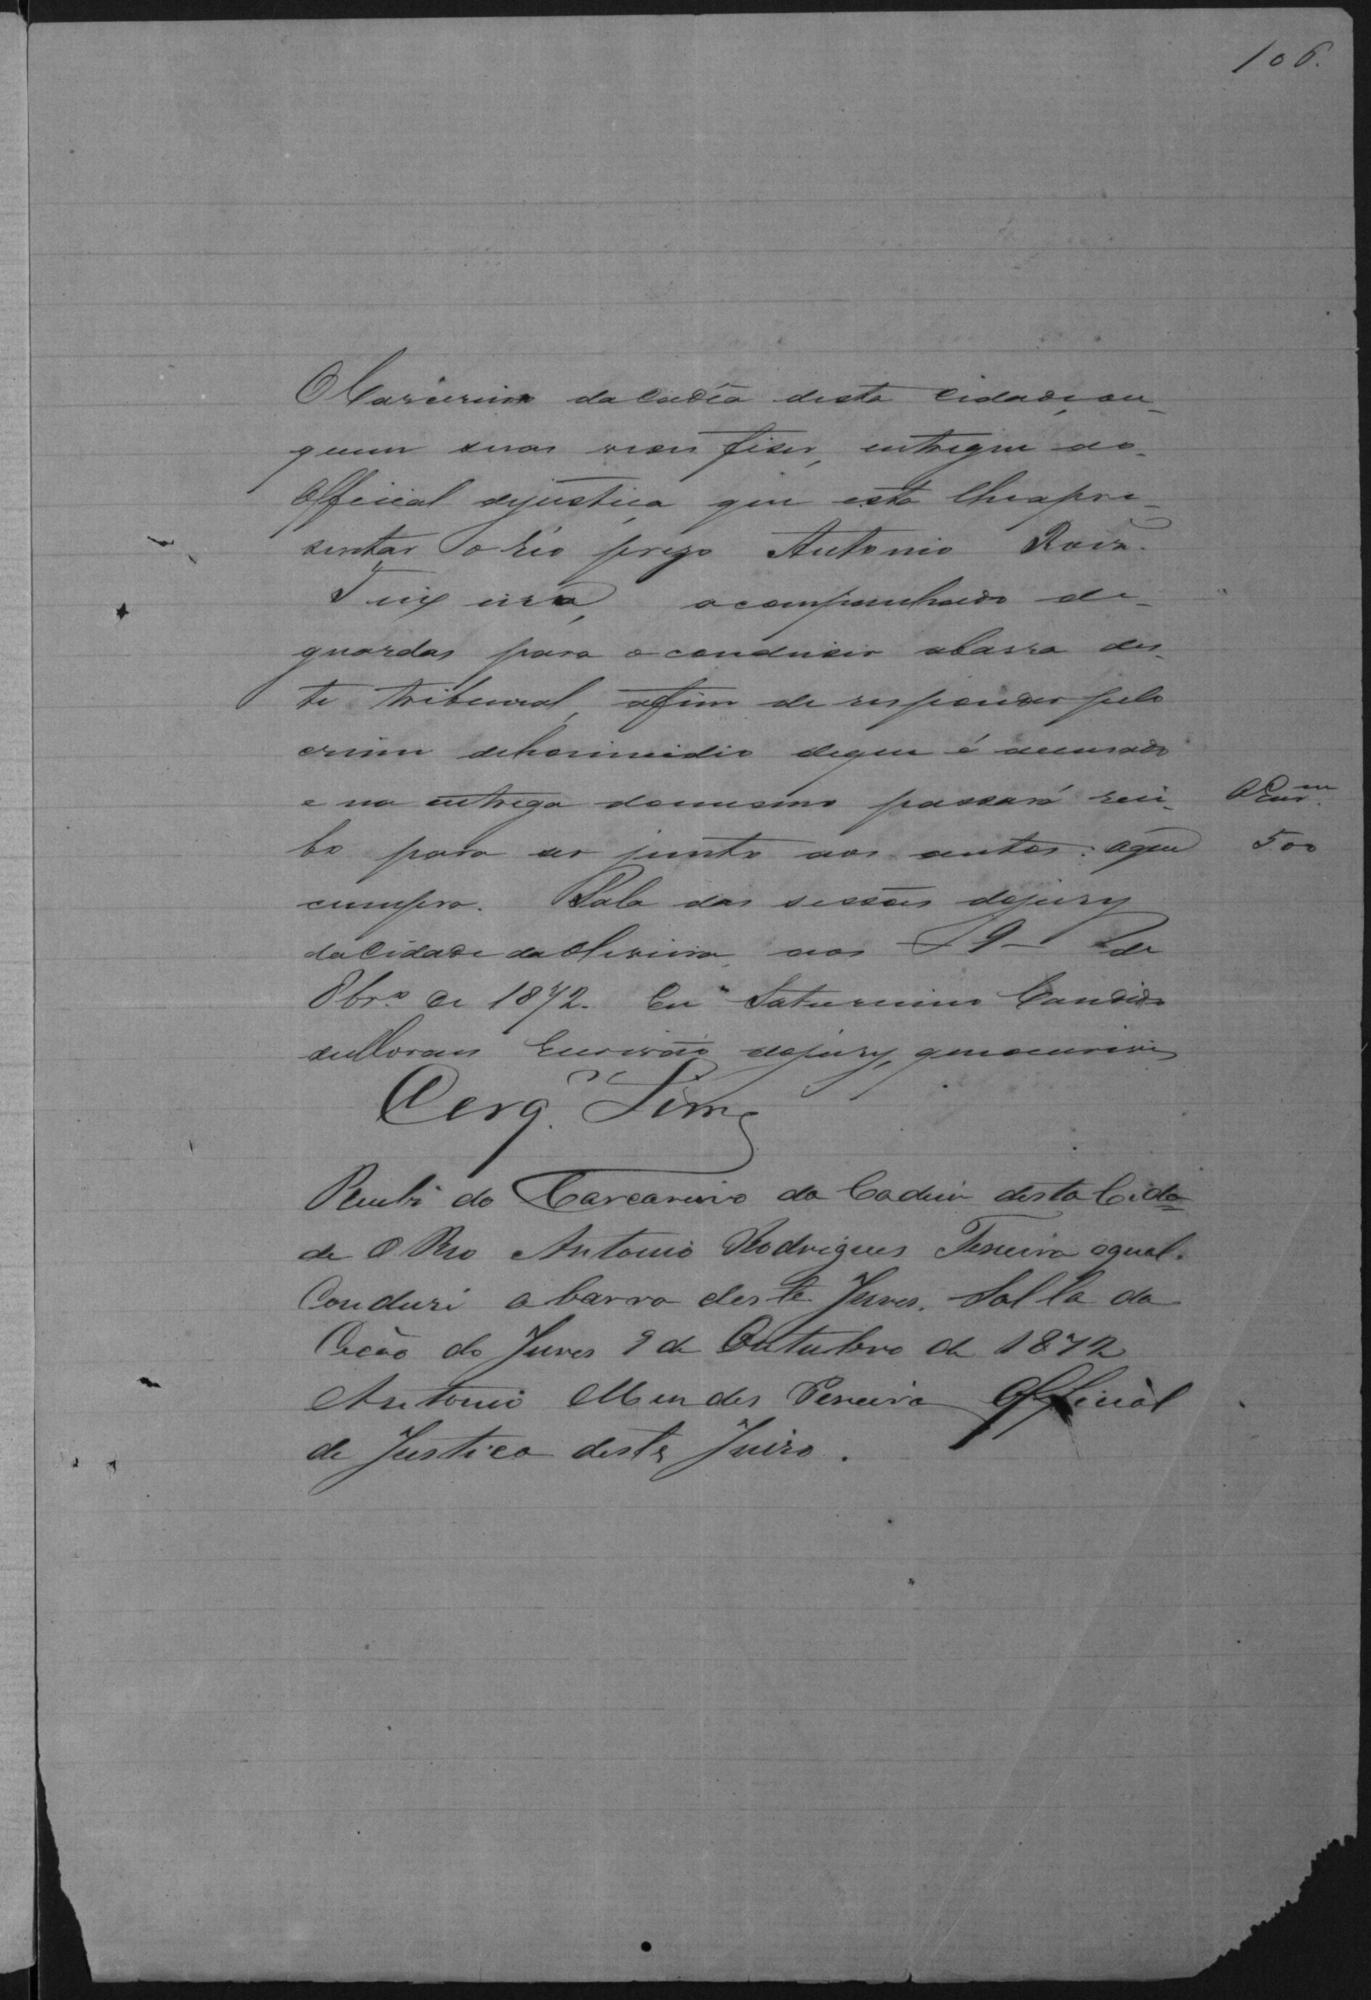 106.
O Carcereiro da Cadêa desta Cidade, ou
quem suas vezes fizer, entregue ao
Official dejustiça, que esta lheapre-
sentar o réo prezo Antonio Roiz
Teixeira, acompanhado de
guardas para o conduzir abarra des-
te tribunal, afim de responder pelo
crime dehomicidio deque é accusado
e na entrega domesmo passará reci-
bo para ser junto aos autos: oque
500
cumpra. Sala das sessões dojury
dacidade da Oliveira, aos 9 de
8brº de 1872. Eu Saturnino Candido
Escrivão dojury, queoescrevi
Cerqª Lima
Recebi do Carcareiro da Cadeia desta Cida-
de O Reo Antonio Rodrigues Texeira oqual
Conduzi abarra deste Jures. Salla da
Ceção do Jures 9 de Outubro de 1872
Antonio Mendes Pereira Official
de Justica deste Juizo.